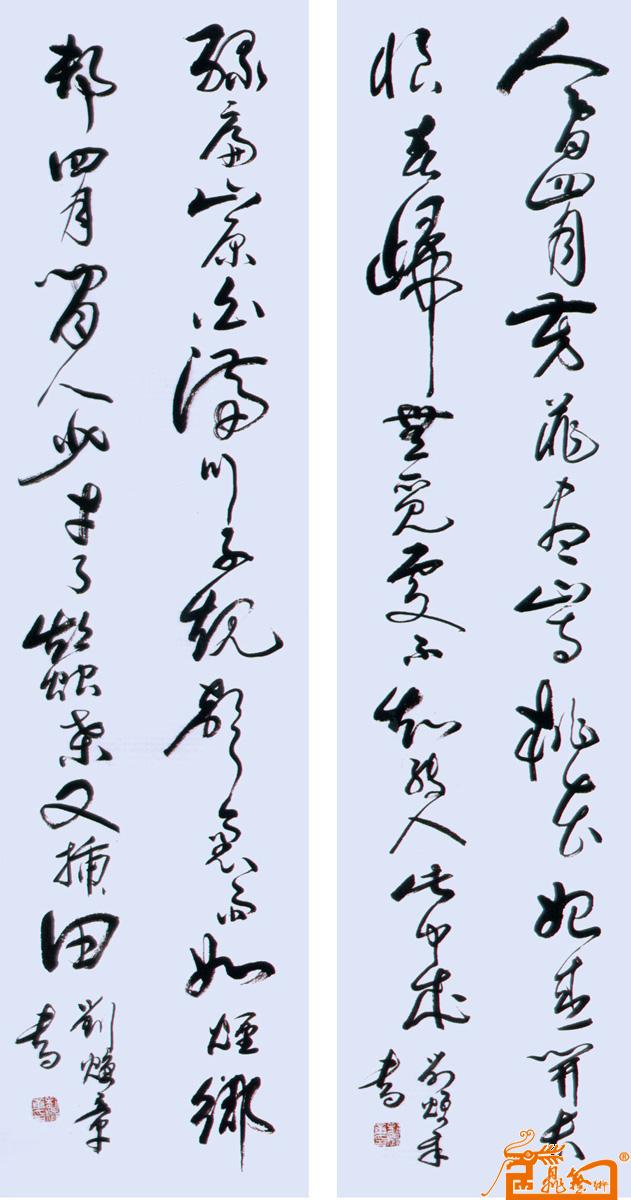 人間四月芳菲盡山寺桃花始盛開長
恨春歸無覓處不知轉入此中來
劉煥章
書
綠遍山原白滿川子規聲裏雨如煙鄉
邨四月閒人少才了蠶桑又插田
劉煥章
書